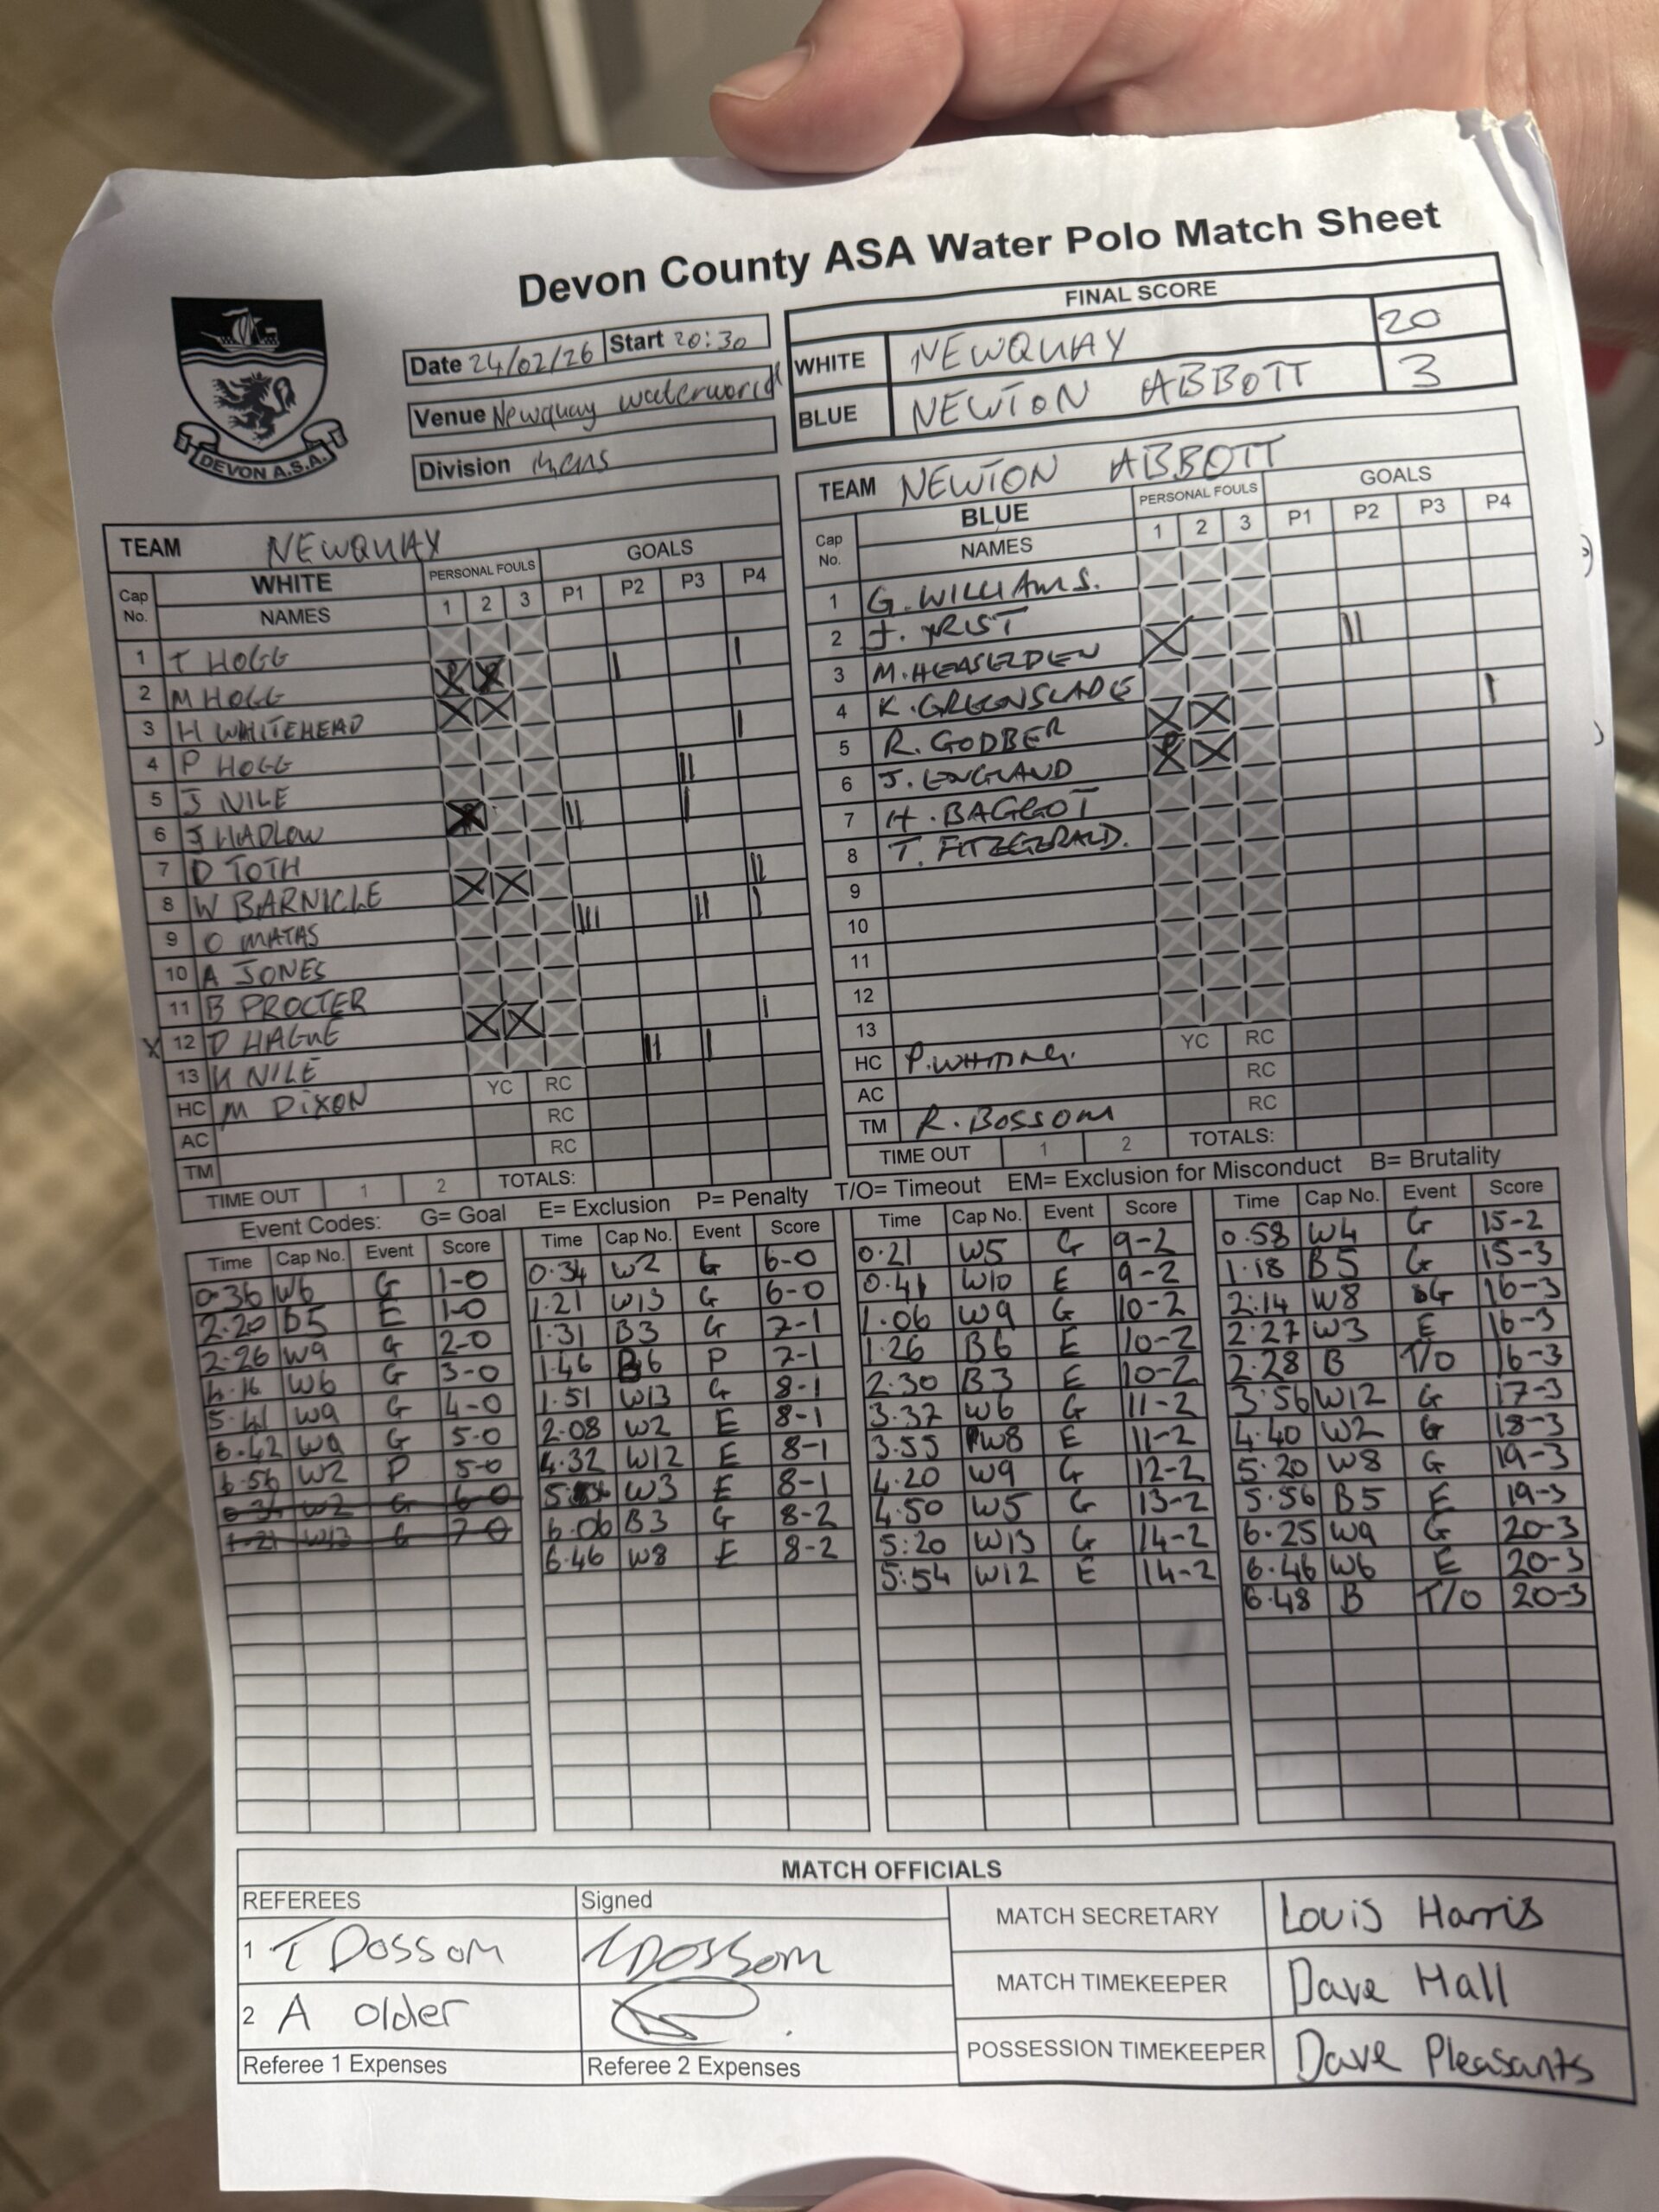 Devon County ASA Water Polo Match Sheet
DEVON A.S.A.
Date 24/02/26 Start 20:30
Venue Newquay waterworld
Division Mens
FINAL SCORE
WHITE NEWQUAY 20
BLUE NEWTON ABBOTT 3
TEAM NEWQUAY
Cap No. WHITE NAMES PERSONAL FOULS 1 2 3 GOALS P1 P2 P3 P4
1 T HOGG
2 M HOGG
3 H WHITEHEAD
4 P HOGG
5 J NILE
6 J HADLOW
7 D TOTH
8 W BARNICLE
9 O MATAS
10 A JONES
11 B PROCTER
X 12 D HAGUE
13 K NILE
HC M DIXON YC RC
AC RC
TM RC
TIME OUT 1 2 TOTALS:
TEAM NEWTON ABBOTT
Cap No. BLUE NAMES PERSONAL FOULS 1 2 3 GOALS P1 P2 P3 P4
1 G. WILLIAMS.
2 J.
3 M. HEASELDEN
4 K. GREENSLADE
5 R. GODBER
6 J. ENGLAND
7 H. BAGGOT
8 T. FITZGERALD.
9
10
11
12
13
HC P. WHITING. YC RC
AC RC
TM R. BOSSOM RC
TIME OUT 1 2 TOTALS:
Event Codes: G= Goal E= Exclusion P= Penalty T/O= Timeout EM= Exclusion for Misconduct B= Brutality
Time Cap No. Event Score
0.36 W6 G 1-0
2.20 B5 E 1-0
2.26 W9 G 2-0
4.16 W6 G 3-0
5.41 W9 G 4-0
6.42 W9 G 5-0
6.56 W2 P 5-0
0.34 W2 G 6-0
1.21 W13 G 7-0
Time Cap No. Event Score
0.34 W2 G 6-0
1.21 W13 G 6-0
1.31 B3 G 7-1
1.46 B6 P 7-1
1.51 W13 G 8-1
2.08 W2 E 8-1
4.32 W12 E 8-1
W3 E 8-1
6.06 B3 G 8-2
6.46 W8 E 8-2
Time Cap No. Event Score
0.21 W5 G 9-2
0.41 W10 E 9-2
1.06 W9 G 10-2
1.26 B6 E 10-2
2.30 B3 E 10-2
3.37 W6 G 11-2
3.55 W8 E 11-2
4.20 W9 G 12-2
4.50 W5 G 13-2
5:20 W13 G 14-2
5:54 W12 E 14-2
Time Cap No. Event Score
0.58 W4 G 15-2
1.18 B5 G 15-3
2:14 W8 G 16-3
2:27 W3 E 16-3
2:28 B T/O 16-3
3:56 W12 G 17-3
4.40 W2 G 18-3
5.20 W8 G 19-3
5.56 B5 E 19-3
6.25 W9 G 20-3
6.46 W6 E 20-3
6.48 B T/O 20-3
MATCH OFFICIALS
REFEREES Signed
1 T Dossom TDossom
2 A older
Referee 1 Expenses Referee 2 Expenses
MATCH SECRETARY Louis Harris
MATCH TIMEKEEPER Dave Hall
POSSESSION TIMEKEEPER Dave Pleasants